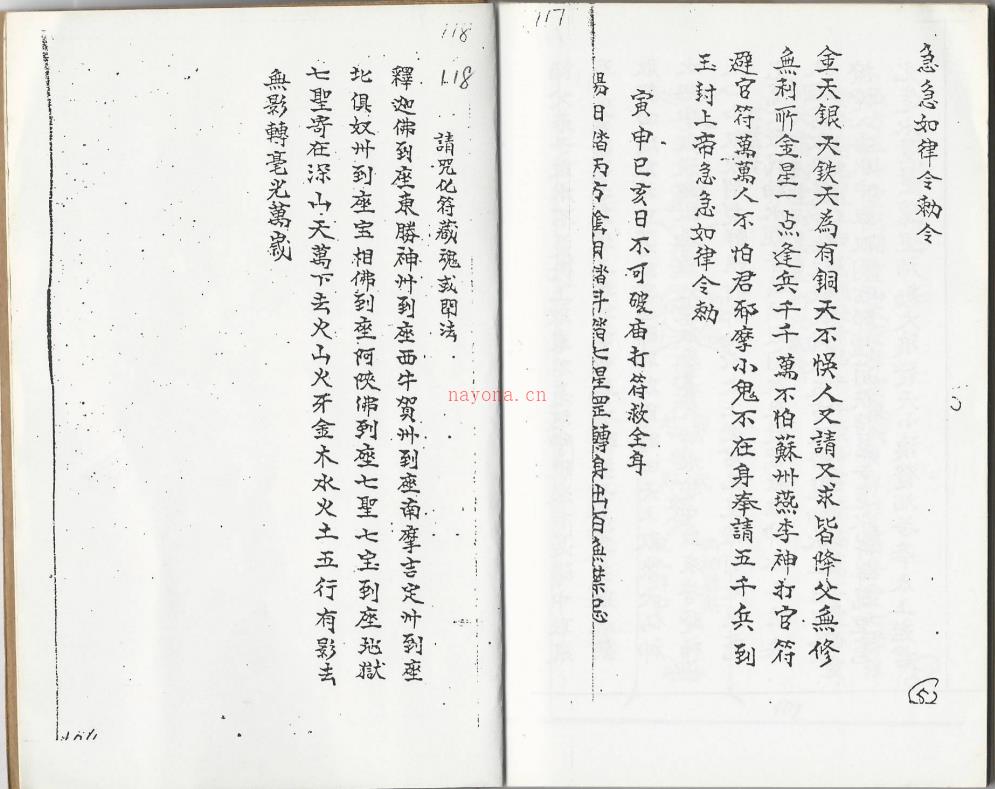 117
急急如律令勅令
金天銀天鉄天為有銅天不悞人又請又求皆降父無修
無利所金星一点逢兵千千萬不怕蘇州燕李神打官符
避官符萬萬人不怕君邪摩小鬼不在身奉請五千兵到
玉封上帝急急如律令勅
寅申巳亥日不可破庙打符救全身
陽日踏丙方陰日踏斗踏七星罡轉身出百無禁忌
5
118
118
請咒化符藏魂或閉法
釋迦佛到座東勝神州到座西牛賀州到座南摩吉定州到座
北俱奴州到座宝相佛到座阿陝佛到座七聖七宝到座地獄
七聖寄在深山天萬下去火山火牙金木水火土五行有影去
無影轉毫光萬歲
nayona.cn